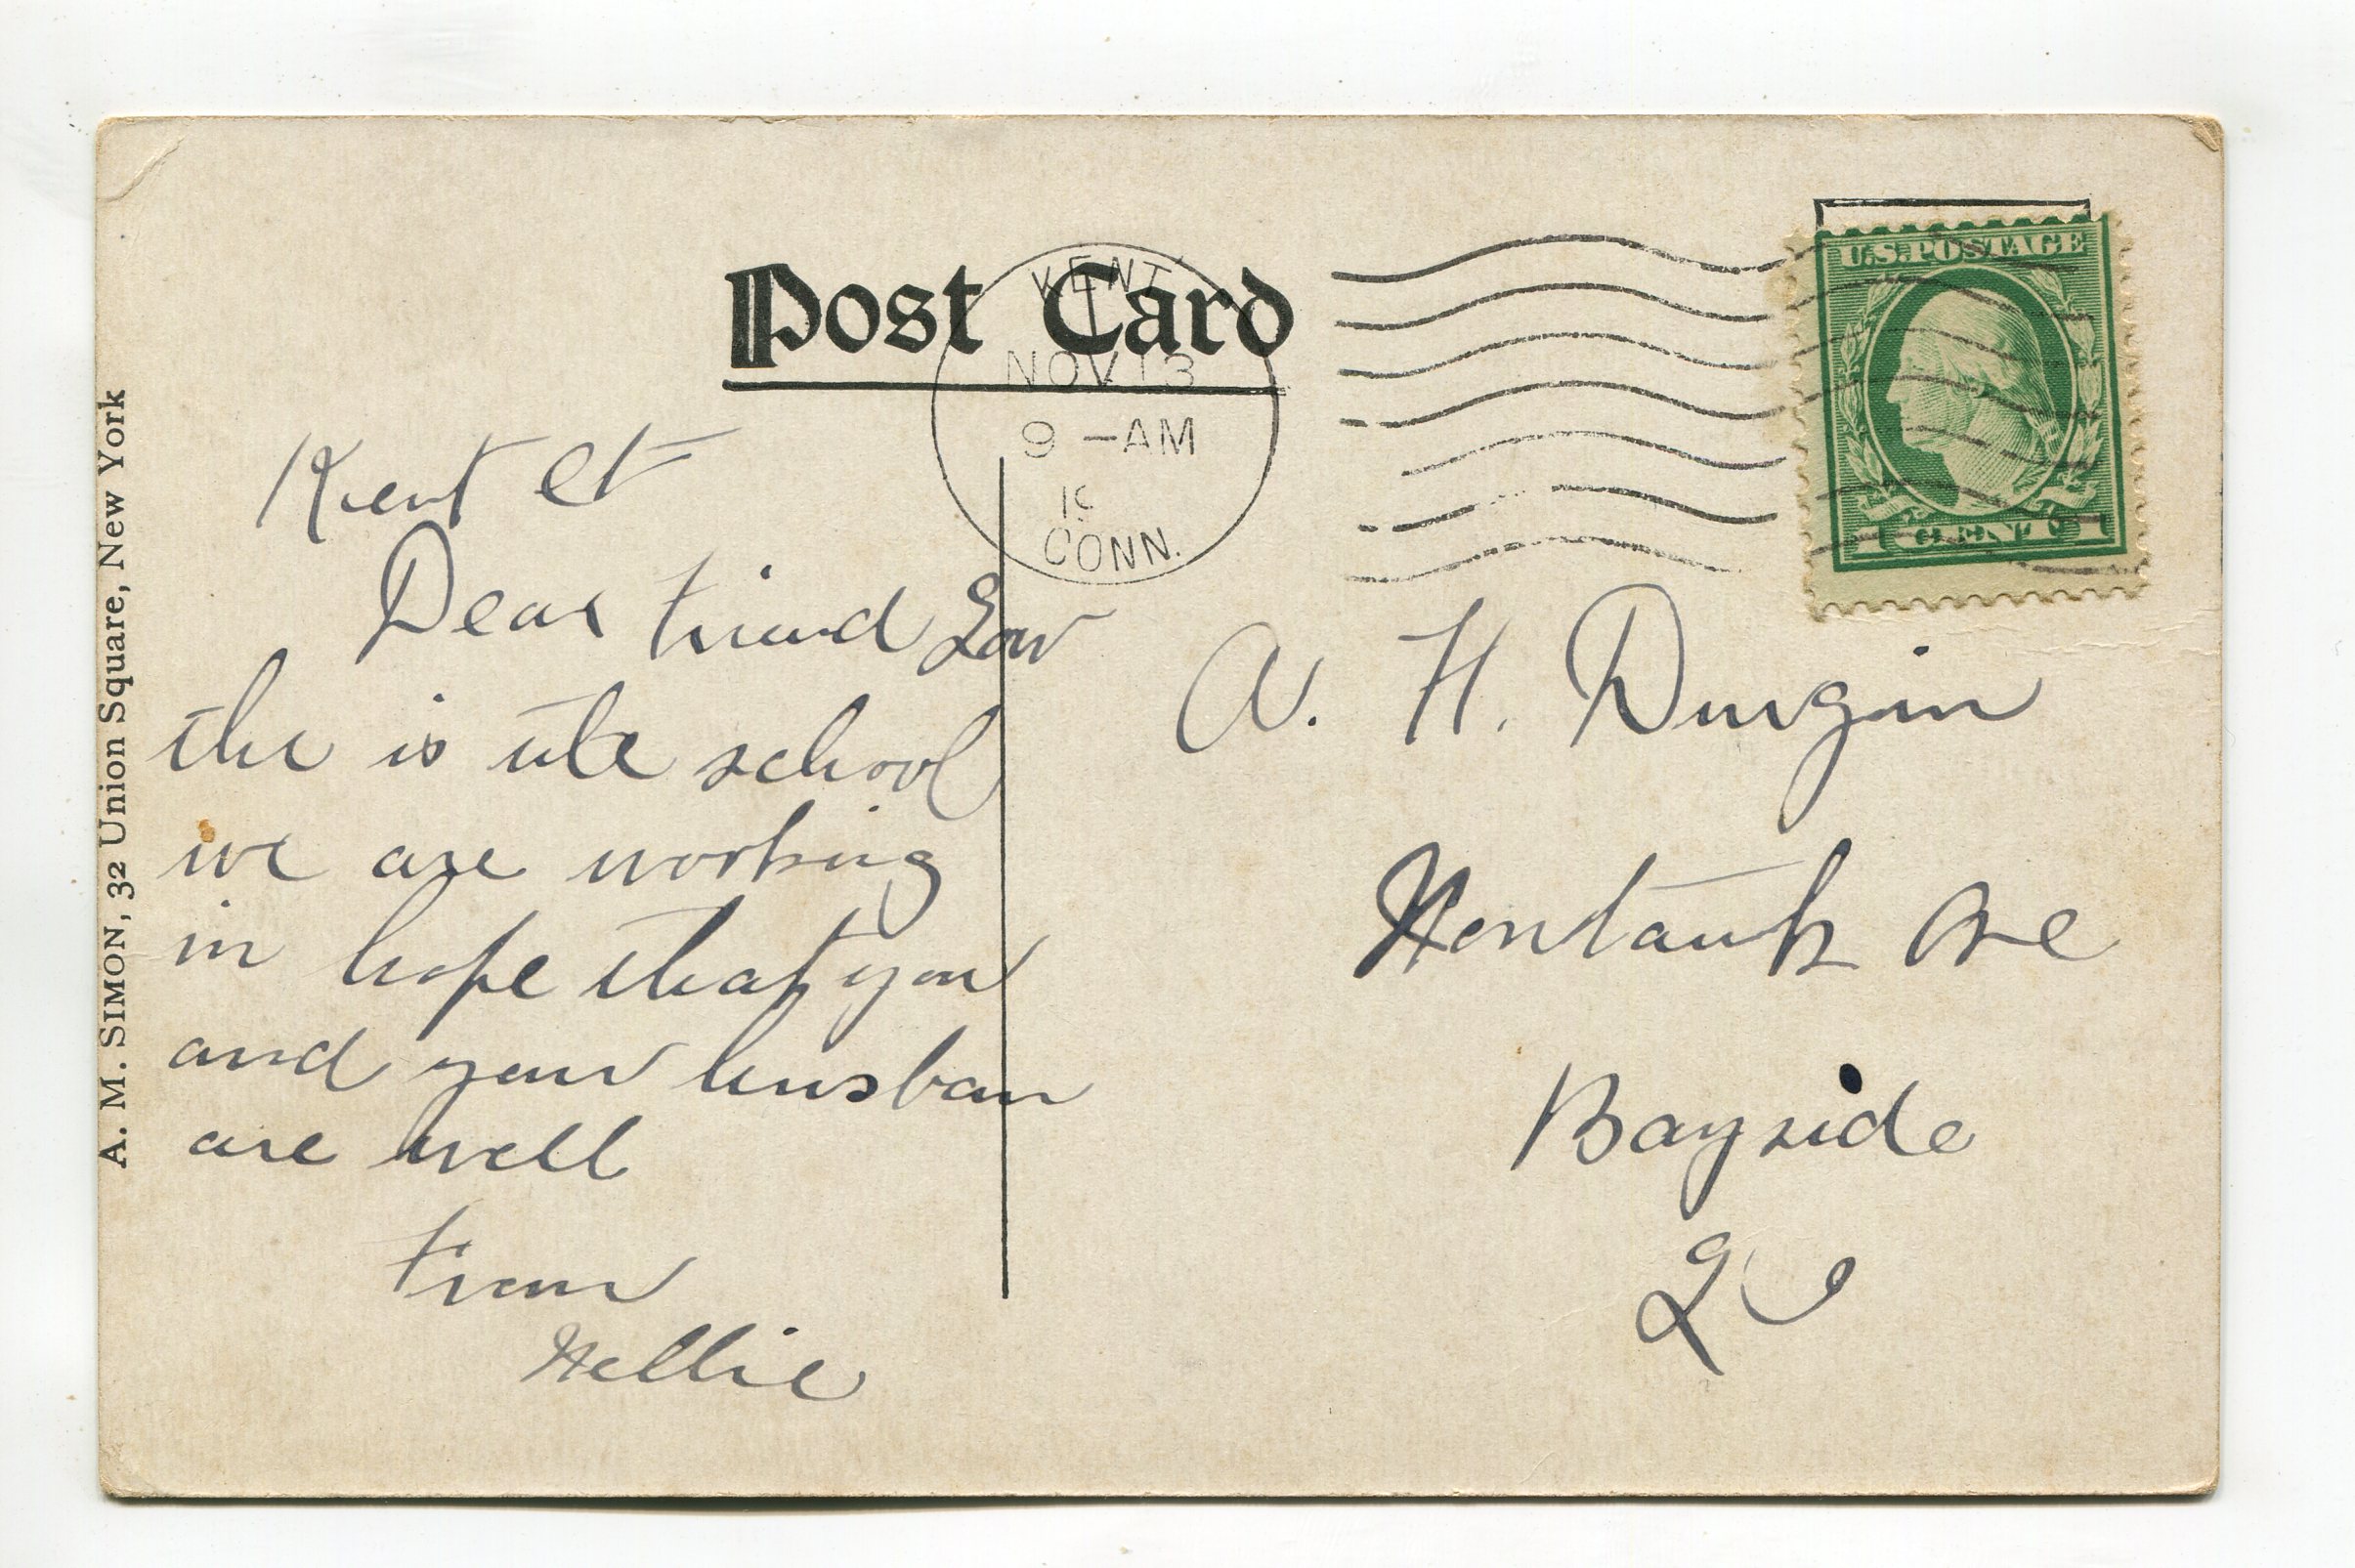 Post Card
KENT
NOV 13
9 -AM
19
CONN.
U.S. POSTAGE
1 CENT 1
A. M. SIMON, 32 Union Square, New York
Kent Ct
Dear Friend
the is the school
we are working
in hope that you
and your husban
are well
From
Nellie
A. H. Durgin
Ave
Bayside